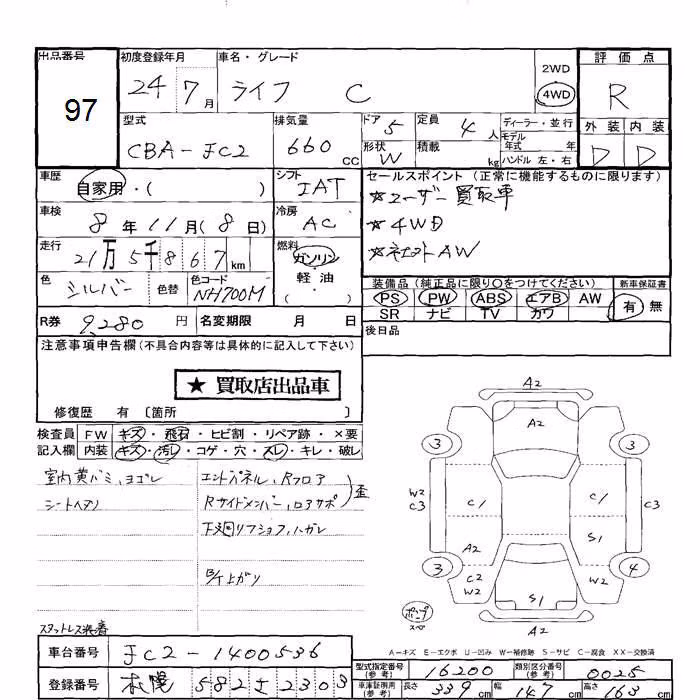 出品番号 97
初度登録年月 24 7月
車名・グレード ライフ C
2WD
4WD
評価点 R
外装 内装
D D
型式 CBA-JC2
排気量 660 cc
ドア 5
形状 W
定員 4人
積載 kg
ディーラー・並行
モデル年式 年
ハンドル 左・右
車歴 自家用・( )
シフト IAT
車検 8年11月(8日)
冷房 AC
走行 21万5千867km
燃料 ガソリン
軽油
・( )
色 シルバー 色替
色コード NH700M
R券 9,280円
名変期限 月 日
セールスポイント(正常に機能するものに限ります)
☆ユーザー買取車
☆4WD
☆社外AW
装備品(純正品に限り〇をつけてください)
PS PW ABS エアB AW
SR ナビ TV カワ
新車保証書
有 無
後日品
注意事項申告欄(不具合内容等は具体的に記入して下さい)
★ 買取店出品車
修復歴 有〔箇所 〕
検査員記入欄
FW キズ・飛石・ヒビ割・リペア跡・×要
内装 キズ・汚レ・コゲ・穴・スレ・キレ・破レ
室内黄バミ、ヨゴレ
シートヘタリ
エンドパネル、Rフロア
Rサイドメンバー、ロアサポ
歪
下廻リフショク、ハガレ
B/T上ガリ
スタットレス装着
A2
A2
3 3
W2
C3
C1 C1
C3
A2 S1
3 4
C2
W2
W2
S1
A2
ポンプ
スペ
A-キズ E-エクボ U-凹み W-補修跡 S-サビ C-腐食 XX-交換済
車台番号 JC2-1400536
登録番号 札幌 582 す 2303
型式指定番号(参考) 16200
類別区分番号(参考) 0025
車庫証明用(参考) 長さ 339cm 幅 147cm 高さ 163cm